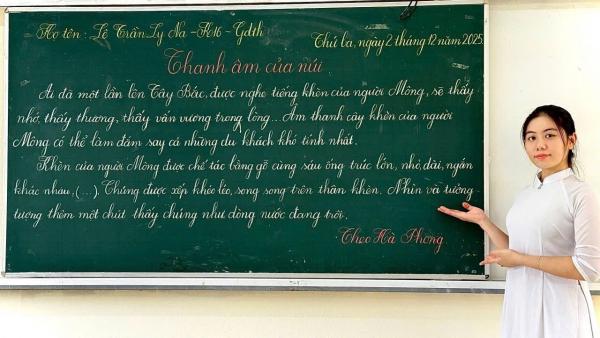 Họ tên: Lê Trần Ly Na - K16 - Gdth
Thứ ba, ngày 2 tháng 12 năm 2025.
Thanh âm của núi
Ai đã một lần lên Tây Bắc, được nghe tiếng khèn của người Mông, sẽ thấy
nhớ, thấy thương, thấy vấn vương trong lòng... Âm thanh cây khèn của người
Mông có thể làm đắm say cả những du khách khó tính nhất.
Khèn của người Mông được chế tác bằng gỗ cùng sáu ống trúc lớn, nhỏ, dài, ngắn
khác nhau, (...) Chúng được xếp khéo léo, song song trên thân khèn. Nhìn và tưởng
tượng thêm một chút thấy chúng như dòng nước đang trôi.
Theo Hà Phong